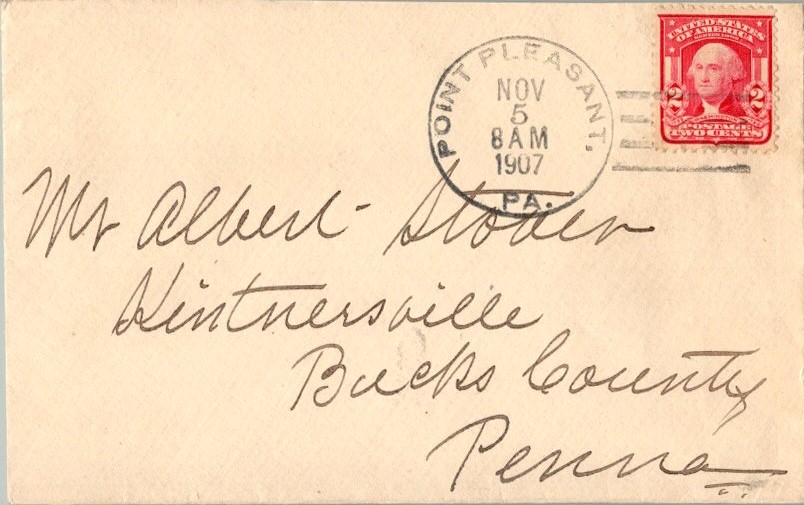 POINT PLEASANT,
NOV
5
8 AM
1907
PA.
UNITED STATES
OF AMERICA
2 2
POSTAGE
TWO CENTS
Mr Albert Stover
Kintnersville
Bucks County
Penna